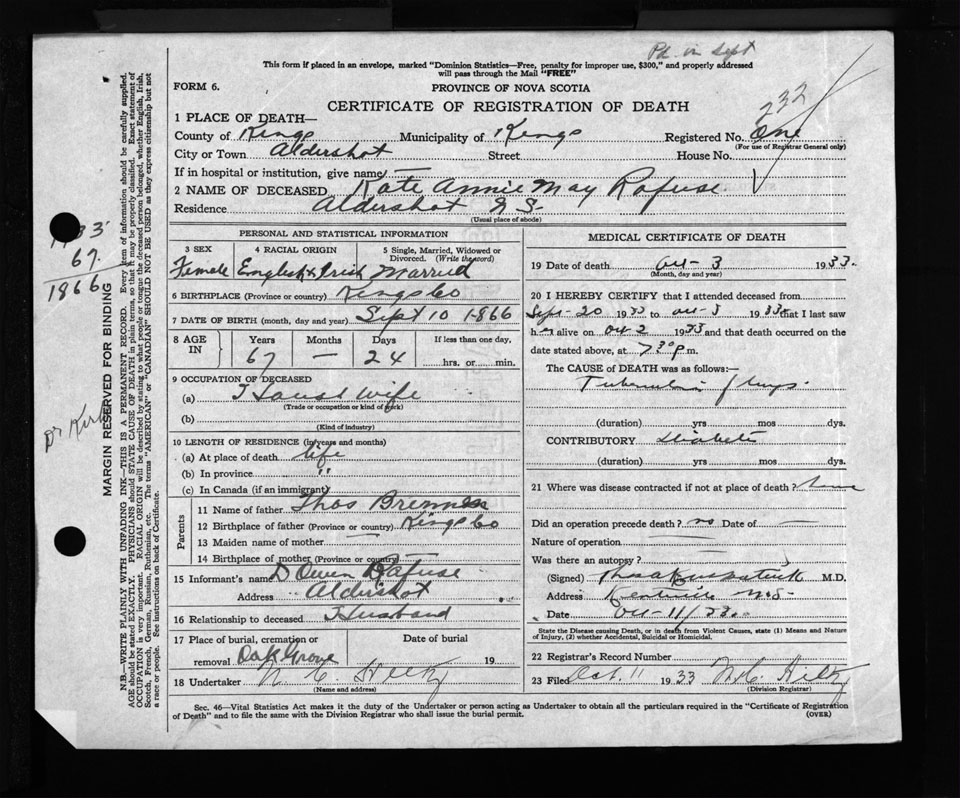 Sept
This form if placed in an envelope, marked "Dominion Statistics—Free, penalty for improper use, $300," and properly addressed
will pass through the Mail "FREE"
FORM 6.
PROVINCE OF NOVA SCOTIA
CERTIFICATE OF REGISTRATION OF DEATH
232
1 PLACE OF DEATH—
County of Kings Municipality of Kings Registered No. One
(For use of Registrar General only)
City or Town Aldershot Street House No.
If in hospital or institution, give name —
2 NAME OF DECEASED Kate Annie May Rafuse
Residence Aldershot N S.
(Usual place of abode)
PERSONAL AND STATISTICAL INFORMATION
3 SEX 4 RACIAL ORIGIN 5 Single, Married, Widowed or Divorced. (Write the word)
Female English & Irish Married
6 BIRTHPLACE (Province or country) Kings Co
7 DATE OF BIRTH (month, day and year) Sept 10 1866
8 AGE IN Years Months Days If less than one day,
67 — 24 hrs. or min.
9 OCCUPATION OF DECEASED
(a) House wife
(Trade or occupation or kind of work)
(b)
(Kind of industry)
10 LENGTH OF RESIDENCE (in years and months)
(a) At place of death life
(b) In province "
(c) In Canada (if an immigrant)
Parents
11 Name of father Thos
12 Birthplace of father (Province or country) Kings Co
13 Maiden name of mother —
14 Birthplace of mother (Province or country)
15 Informant's name D Owen Rafuse
Address Aldershot
16 Relationship to deceased Husband
17 Place of burial, cremation or removal Oak Grove Date of burial 19
18 Undertaker W. C. Hiltz
(Name and address)
MEDICAL CERTIFICATE OF DEATH
19 Date of death Oct- 3 1933.
(Month, day and year)
20 I HEREBY CERTIFY that I attended deceased from
Sept- 20 1933 to Oct- 3 1933 that I last saw
her alive on Oct 2 1933 and that death occurred on
date stated above, at 7 30 p.m.
The CAUSE of DEATH was as follows:—
Tuberculosis of lungs.
(duration) yrs mos dys.
CONTRIBUTORY Diabetes
(duration) yrs mos dys.
21 Where was disease contracted if not at place of death?
Did an operation precede death? no Date of —
Nature of operation —
Was there an autopsy?
(Signed) M.D.
Address Kentville N.S.
Date Oct- 11/33.
State the Disease causing Death, or in death from Violent Causes, state (1) Means and Nature
of Injury, (2) whether Accidental, Suicidal or Homicidal.
22 Registrar's Record Number
23 Filed Oct. 11 1933 W.C. Hiltz
(Division Registrar)
Sec. 46—Vital Statistics Act makes it the duty of the Undertaker or person acting as Undertaker to obtain all the particulars required in the "Certificate of Registration
of Death" and to file the same with the Division Registrar who shall issue the burial permit. (OVER)
67.
1866
MARGIN RESERVED FOR BINDING
N.B.—WRITE PLAINLY WITH UNFADING INK—THIS IS A PERMANENT RECORD. Every item of information should be carefully supplied.
AGE should be stated EXACTLY. PHYSICIANS should STATE CAUSE OF DEATH in plain terms, so that it may be properly classified. Exact statement of
OCCUPATION is very important. RACIAL ORIGIN will be described by stating to what people or race the deceased person belonged, whether English, Irish,
Scotch, French, German, Russian, Ruthenian, etc. The terms "AMERICAN" or "CANADIAN" SHOULD NOT BE USED as they express citizenship but not
a race or people. See instructions on back of Certificate.